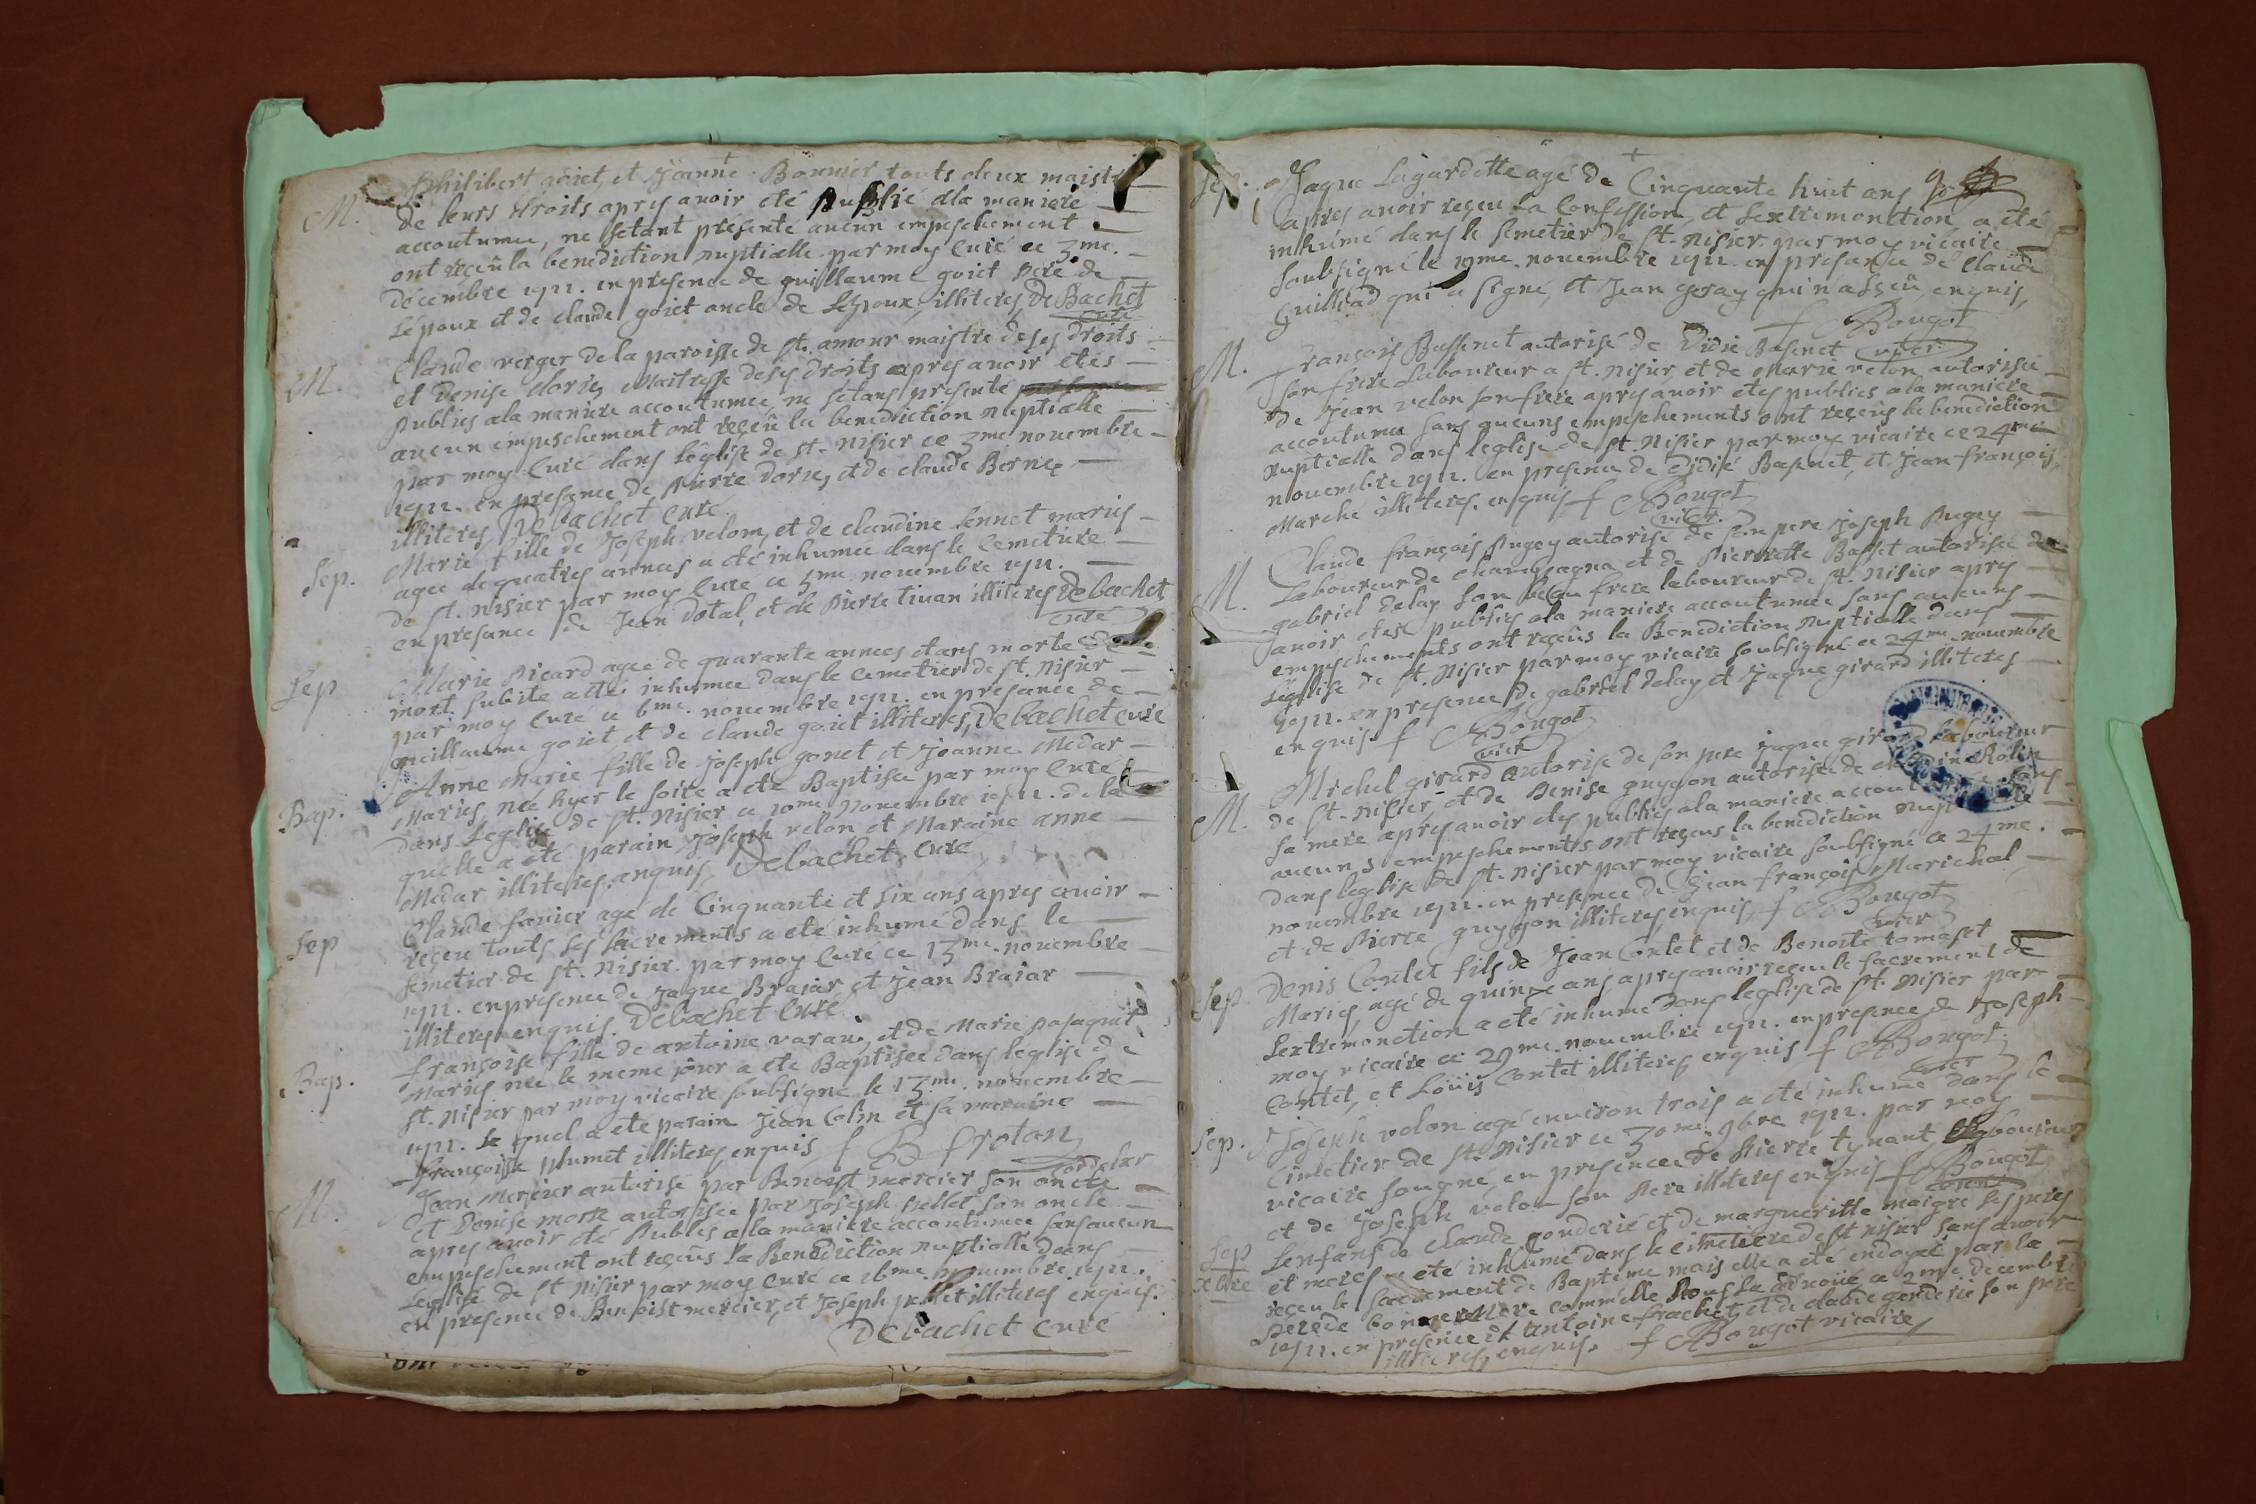 M. Philibert goiet et Jeanne Bonnier touts deux maistre
de leurs droits apres avoir eté publié ala maniere
accoutumee, ne setant présenté aucun empeschement
ont reçeu la benediction nuptialle par moy Curé ce 3me.
décembre 1711. en presence de guillaume goiet pere de
Lépoux et de claude goiet oncle de Lepoux, illiteres, De Bachet
curé
M. Claude verger de la paroisse de St. amour maistre de ses droits
et Denise dorie, Maitresse de ses droits apres avoir etes
publies ala maniere accoutumee ne sétans presenté
aucun empeschement ont reçeû la benediction nuptialle
par moy Curé dans l'église de St. Nisier ce 3me novembre
1711. en presence de pierre dorie, et de claude Berne,
illiteres, Debachet curé
Sep. Marie fille de Joseph velom, et de claudine Sennet maries
agee de quatres annees a eté inhumee dans le Cemetiere
de St. Nisier par moy Curé ce 5me novembre 1711.
en presance de Jean Dotal, et de pierre tivan illiteres Debachet
curé
Sep Marie Picard agee de quarante annees etans morte dune
mort subite a eté inhumee dans le cemetier de St. Nisier
par moy Curé ce 6me. novembre 1711. en presance de
guillaume goiet et de claude goiet illiteres, Debachet curé
Bap. Anne Marie fille de Joseph gonet et Joanne Medar
Maries neé hyer le soire a eté Baptisée par moy Curé
dans Leglise de St. Nisier ce 10me novembre 1711. de la
quelle a eté parain Joseph velon et Maraine anne
Medar illiteres, enquis, Debachet, curé
Sep Claude Savier agé de Cinquante et six ans apres avoir
reçeu touts ses sacrements a eté inhumé dans le
semetier de St. Nisier par moy Curé ce 13me. novembre
1711. en presence de Jaque Braiar et Jean Braiar
illiteres enquis. Debachet Curé
Bap. françoise fille de antoine varau, et de Marie
Maries neé le meme jour a eté Baptisée dans leglise de
St. Nisier par moy vicaire soubsigné le 13me. novembre
1711. Le quel a eté parain Jean Colin et sa maraine
françoise plumet illiteres enquis f B frotan
cordelier
M. Jean Mercier autorisé par Benoist mercier son oncle
et Denise autorisée par Joseph pellet son oncle
apres avoir eté publiés a la maniere accoutumee sans aucun
empeschement ont reçeûs la Benediction nuptialle dans
Leglise de St Nisier par moy Curé ce 16me. novembre 1711.
en presence de Benoist mercier, et Joseph pellet illiteres enquis.
Debachet curé
Sep. Jaque Lagardette agé de Cinquante huit ans
apres avoir reçeu la Confession, et lextremonction a eté
inhumé dans le semetier de St. Nisier par moy vicaire
soubsigné le 19me. novembre 1711. en presance de Claude
Guilliad qui a signé, et Jean qui na sçeu, enquis,
f Bougot
vicr.
M. françois Bassenet autorisé de Didié Basenet
son frere Laboureur a St. nisier et de Marie velon autorisée
de Jean velon son frere apres avoir etes publies ala maniere
accoutumée sans aucuns empeschements ont reçeus la benediction
nuptialle dans leglise de St. Nisier par moy vicaire ce 24me
novembre 1711. en presence de Didié Basenet, et Jean françois
Marche illiteres, enquis f Bougot
vicr.
M. Claude françois Pugey autorisé de son pere Joseph Pugey
Laboureur de champagna et de Pierrette Basset autorisée de
gabriel delay son Beau frere laboureur de St. Nisier apres
avoir etes publies ala maniere accoutumee sans aucuns
empeschements ont reçeûs la Benediction nuptialle dans
Léglise de St. Nisier par moy vicaire soubsigné ce 24me. novembre
1711. en presence de gabriel delay et Jaque girard illiteres
enquis f Bougot
vicr
M. Michel girard autorisé de son pere jaque girard laboureur
de St. Nisier, et de Denise guygon autorisée de claudine Rolin
sa mere apres avoir etes publies ala maniere sans
aucuns empeschements ont reçeus la benediction
dans leglise de St. Nisier par moy vicaire soubsigné ce 24me.
novembre 1711. en presence de Jean françois Marichal
et de Pierre guygon illiteres, enquis, f Bougot
vicr
Sep. Denis Contet fils de Jean Contet et de Benoite tomaset
Maries, agé de quinze ans apres avoir reçeu le sacrement de
Lextremonction a eté inhumé dans leglise de St. Nisier par
moy vicaire ce 29me. novembre 1711. en presence de Joseph
Contet, et Loüis Contet illiteres, enquis f Bougot
vicr
Sep. Joseph velon agé environ trois a eté inhumé dans le
Cimetier de St. Nisier ce 30me. 9bre 1711. par moy
vicaire sougné en presence de Pierre tynant laboureur
et de Joseph velon son Pere illiteres enquis f Bougot
Sep Xbre Lenfans de claude gonderié et de margueritte maigre ses peres
et meres a eté inhumé dans le cimetiere de St nisier sans avoir
reçeu le sacrement de Baptême mais elle a eté endoyee par la
commelle nous la advoüé ce 2me. decembre
1711. en presence de Antoine frachet, et de claude gonderié son pere
illiteres, enquis. f Bougot vicaire